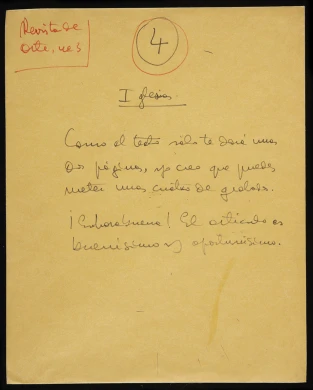 Revista de
Ori, nes
4
Iglesias
Como el texto sólo te dará unas
dos páginas, yo creo que puedes
meter unas cuantas de
¡Enhorabuena! El artículo es
buenísimo y oportunísimo.